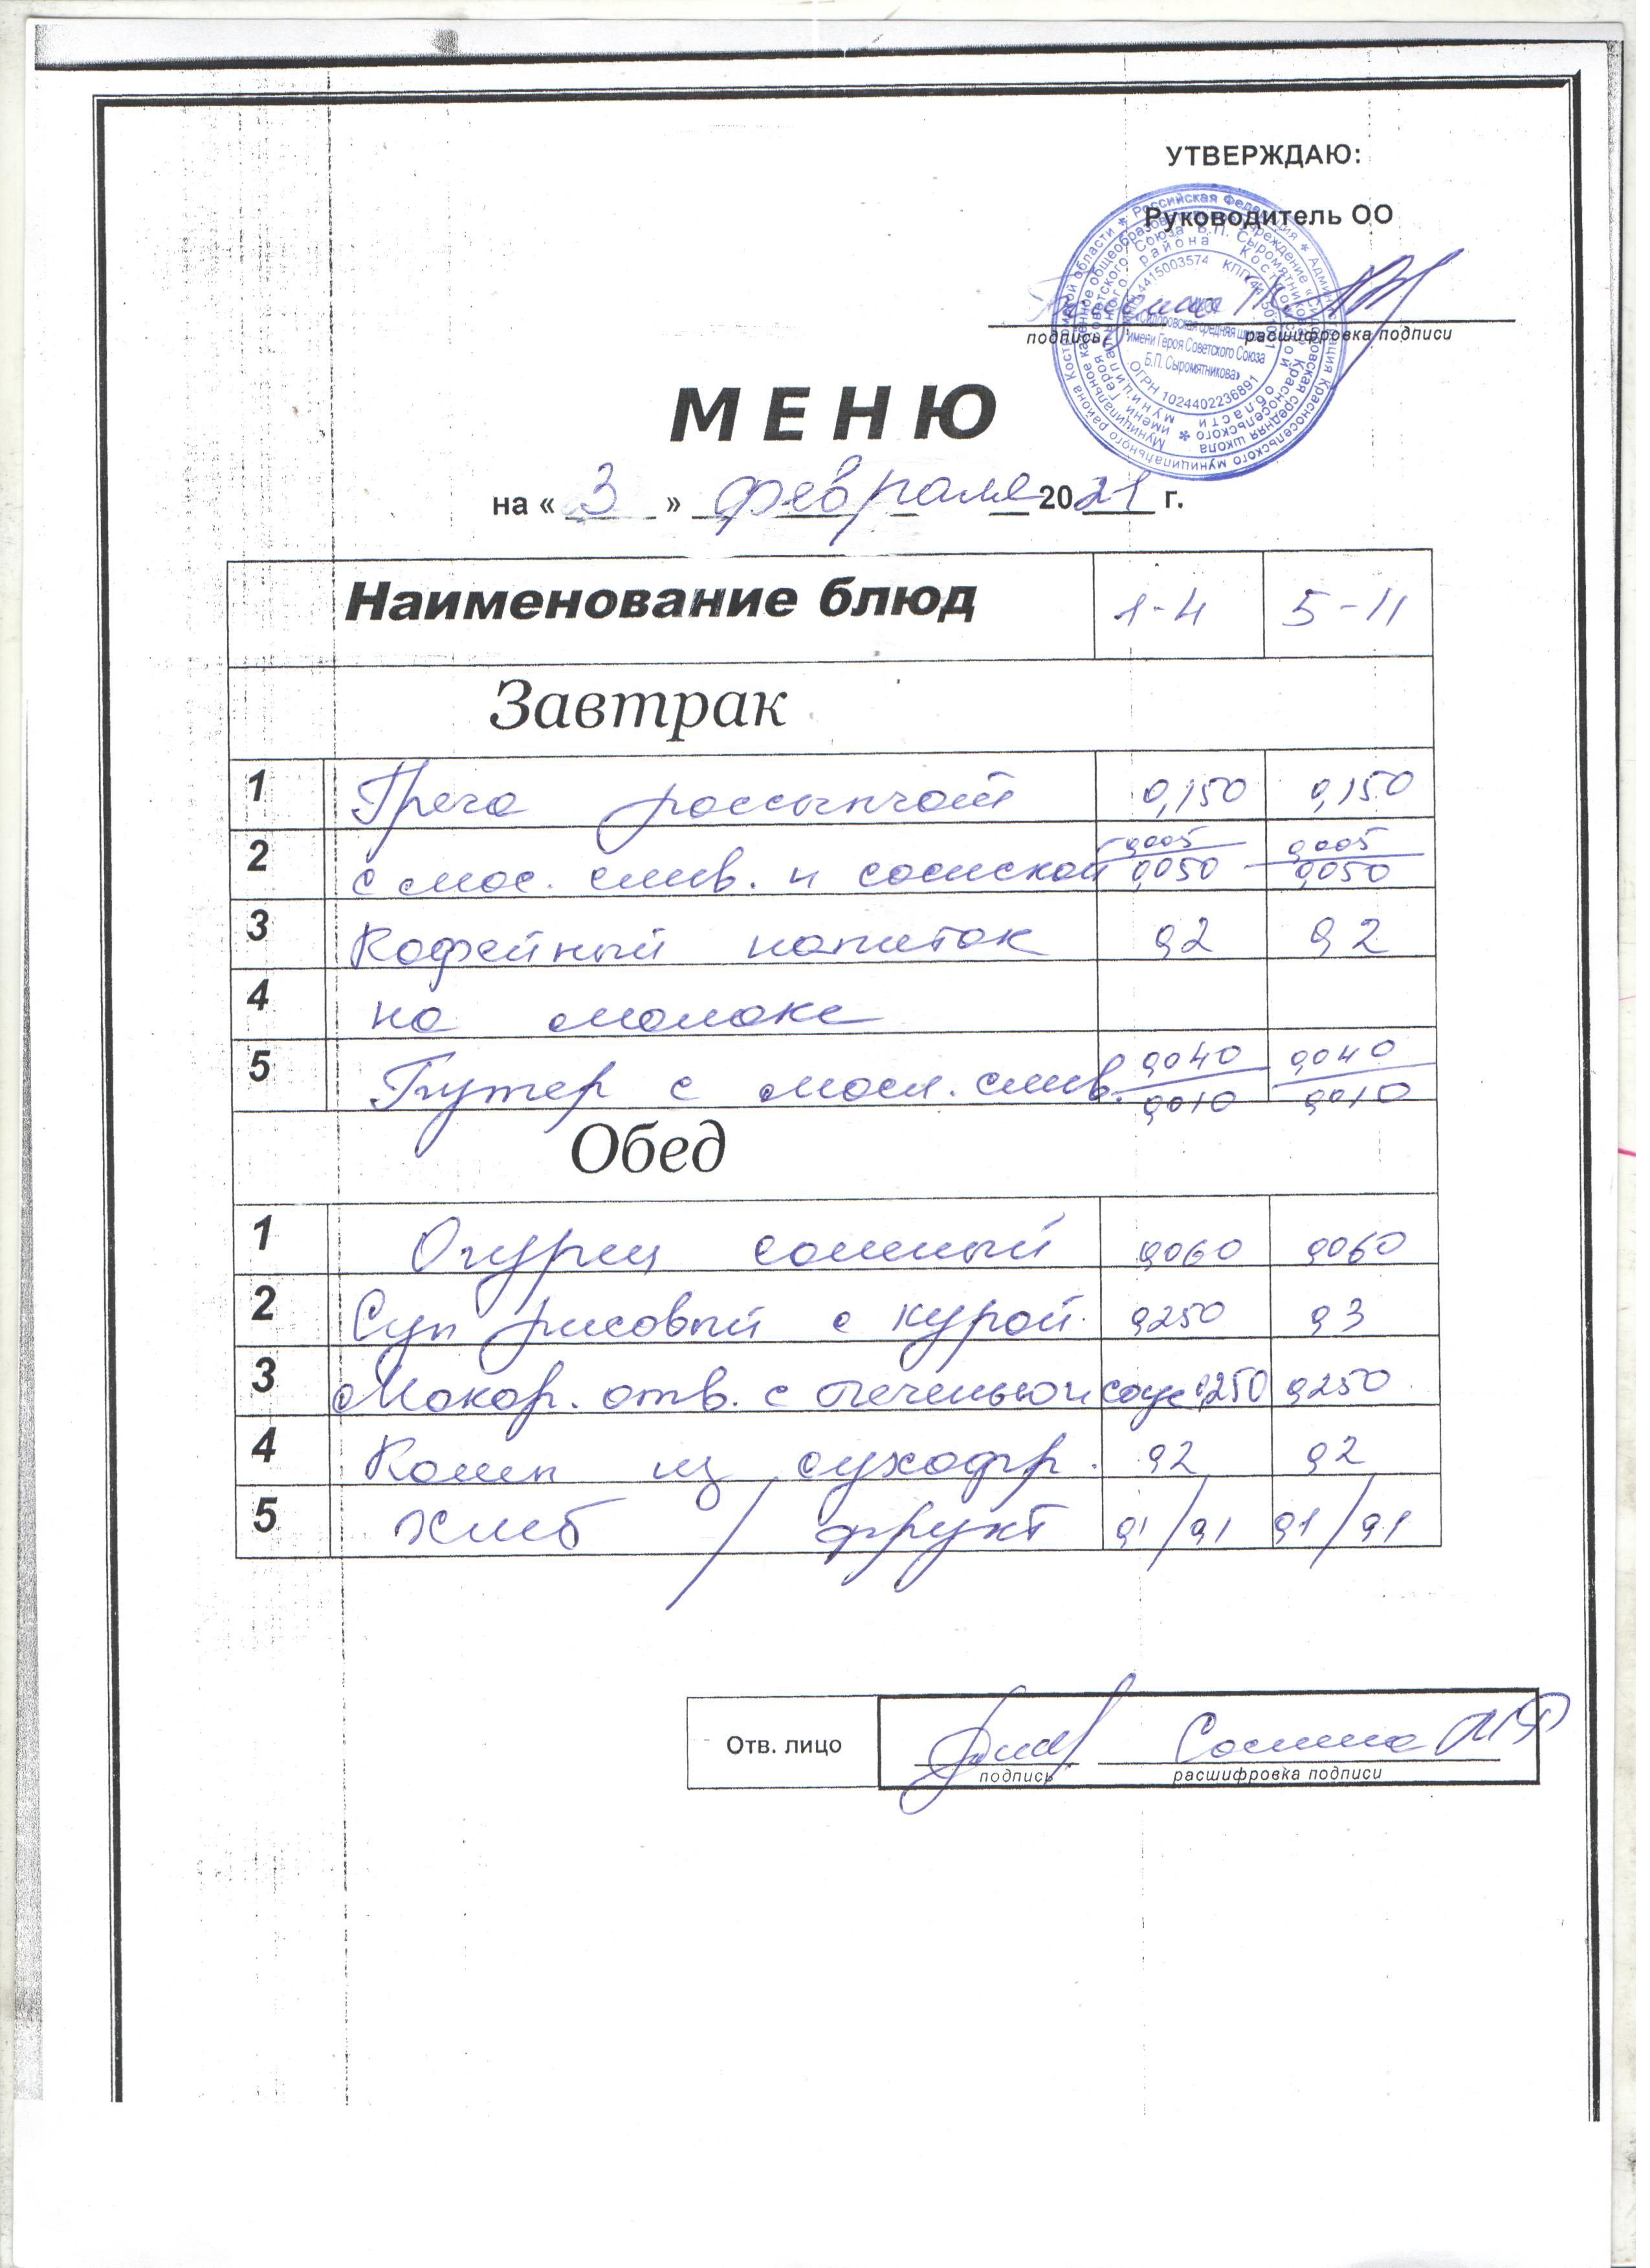 УТВЕРЖДАЮ:
Руководитель ОО
подпись расшифровка подписи
ИНН 4415003574
«Сидоровская средняя школа
имени Героя Советского Союза
Б.П. Сыромятникова»
ОГРН 1024402236891
МЕНЮ
на « 3 » февраля 2021 г.
Наименование блюд 1-4 5-11
Завтрак
1 Греча рассыпчат 0,150 0,150
2 с мас. слив. и сосиской 0,005/0,050 0,005/0,050
3 Кофейный напиток 0,2 0,2
4 на молоке
5 Бутер с масл. слив. 0,040/0,010 0,040/0,010
Обед
1 Огурец соленый 0,060 0,060
2 Суп рисовый с курой 0,250 0,3
3 Макар. отв. с печенью и соус 0,250 0,250
4 Комп из сухофр. 0,2 0,2
5 Хлеб / фрукт 0,1/0,1 0,1/0,1
Отв. лицо
подпись расшифровка подписи